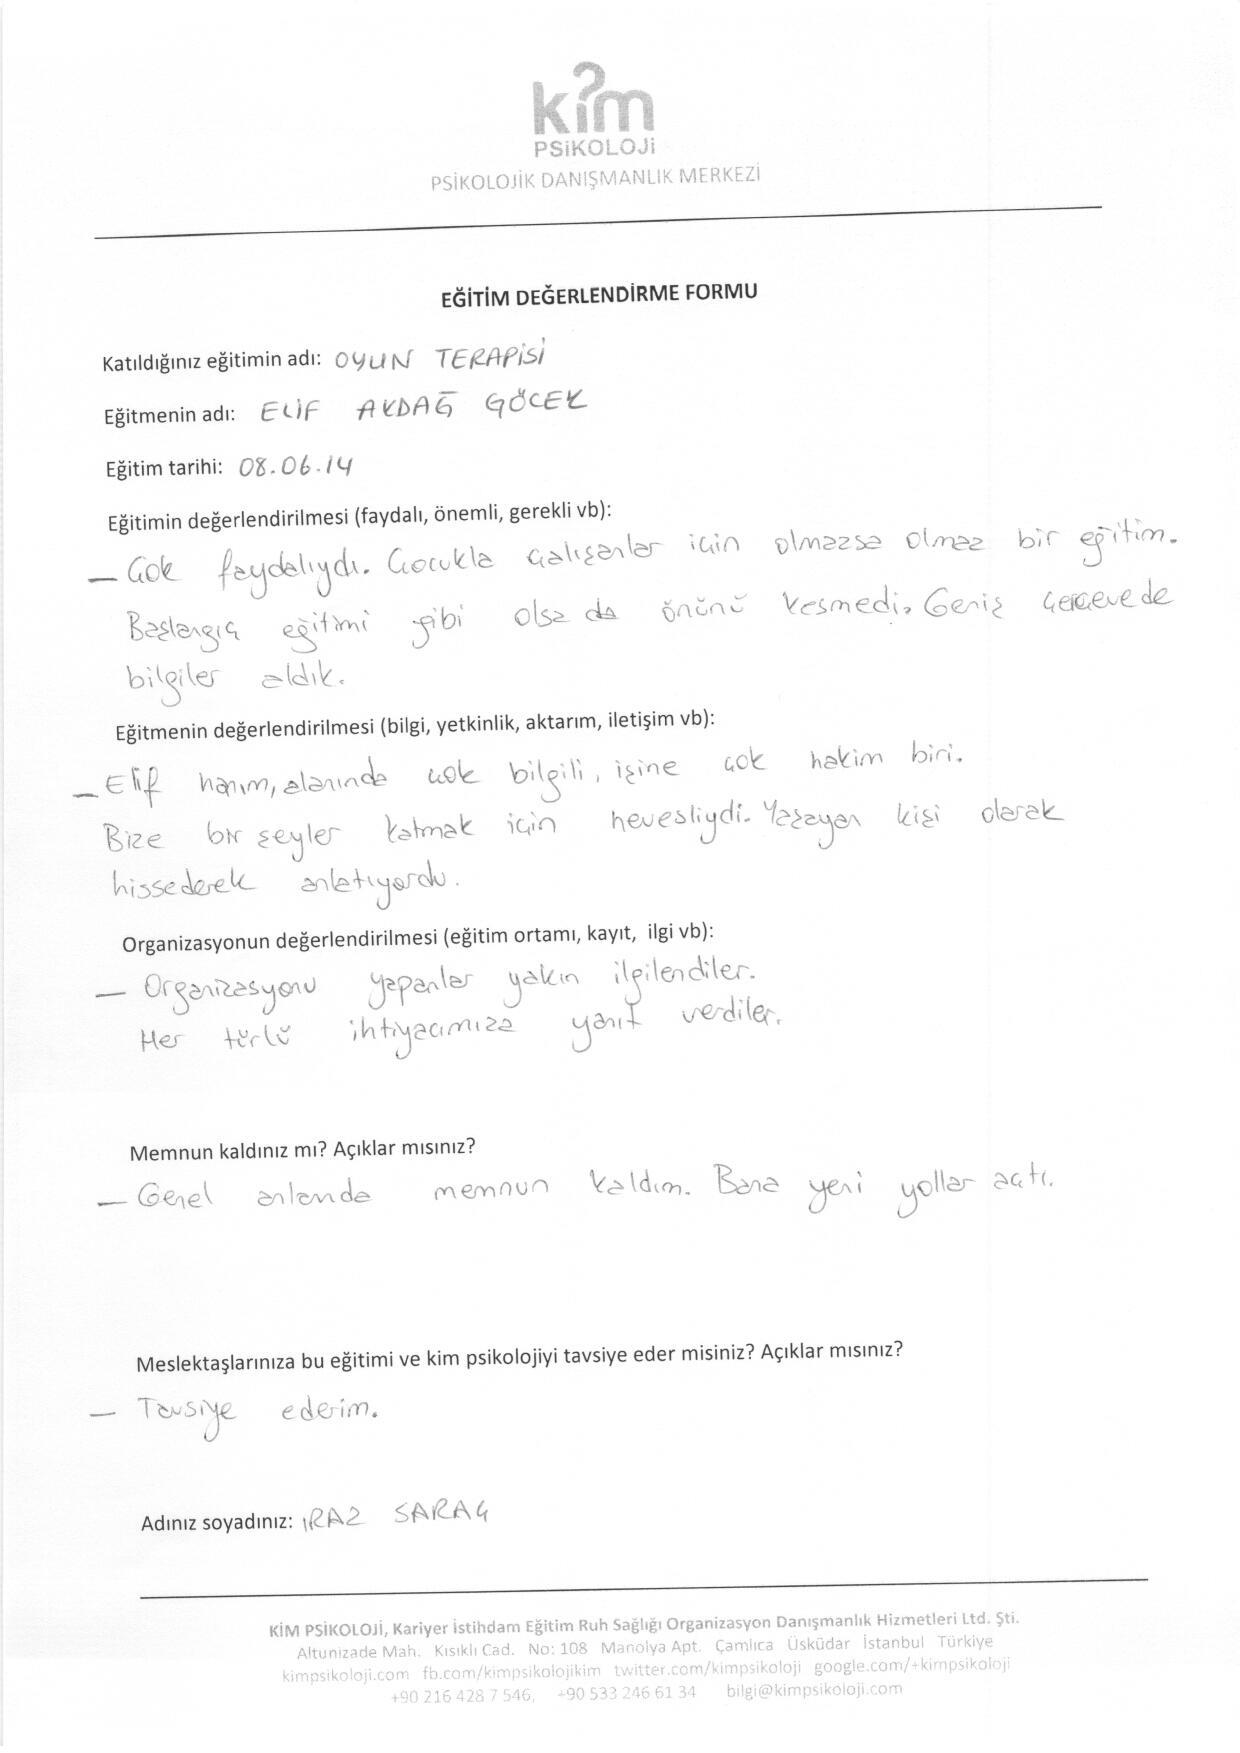 kim
PSiKOLOJi
PSİKOLOJİK DANIŞMANLIK MERKEZİ
EĞİTİM DEĞERLENDİRME FORMU
Katıldığınız eğitimin adı: OYUN TERAPİSİ
Eğitmenin adı: ELİF AKDAĞ GÖCEK
Eğitim tarihi: 08.06.14
Eğitimin değerlendirilmesi (faydalı, önemli, gerekli vb):
— Çok faydalıydı. Çocukla çalışanlar için olmazsa olmaz bir eğitim.
Başlangıç eğitimi gibi olsa da önünü kesmedi. Geniş çerçevede
bilgiler aldık.
Eğitmenin değerlendirilmesi (bilgi, yetkinlik, aktarım, iletişim vb):
— Elif hanım, alanında çok bilgili, işine çok hakim biri.
Bize bir şeyler katmak için hevesliydi. Yaşayan kişi olarak
hissederek anlatıyordu.
Organizasyonun değerlendirilmesi (eğitim ortamı, kayıt, ilgi vb):
— Organizasyonu yapanlar yakın ilgilendiler.
Her türlü ihtiyacımıza yanıt verdiler.
Memnun kaldınız mı? Açıklar mısınız?
— Genel anlamda memnun kaldım. Bana yeni yollar açtı.
Meslektaşlarınıza bu eğitimi ve kim psikolojiyi tavsiye eder misiniz? Açıklar mısınız?
— Tavsiye ederim.
Adınız soyadınız: IRAZ SARAÇ
KİM PSİKOLOJİ, Kariyer İstihdam Eğitim Ruh Sağlığı Organizasyon Danışmanlık Hizmetleri Ltd. Şti.
Altunizade Mah. Kısıklı Cad. No: 108 Manolya Apt. Çamlıca Üsküdar İstanbul Türkiye
kimpsikoloji.com fb.com/kimpsikolojikim twitter.com/kimpsikoloji google.com/+kimpsikoloji
+90 216 428 7 546, +90 533 246 61 34 bilgi@kimpsikoloji.com